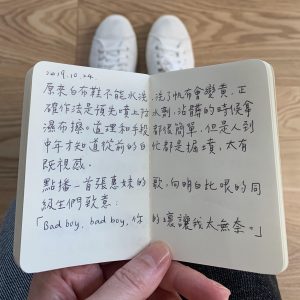 2019.10.24
原來白布鞋不能水洗,洗了帆布會變黃,正
確作法是預先噴上防水劑,沾髒的時候拿
濕布擦。道理和手段都很簡單,但是人到
中年才知道從前的白忙都是掘墳,太有
既視感。
點播一首張惠妹的歌,向明白比眼的同
級生們致意:
「Bad boy, bad boy, 你的壞讓我太無奈。」